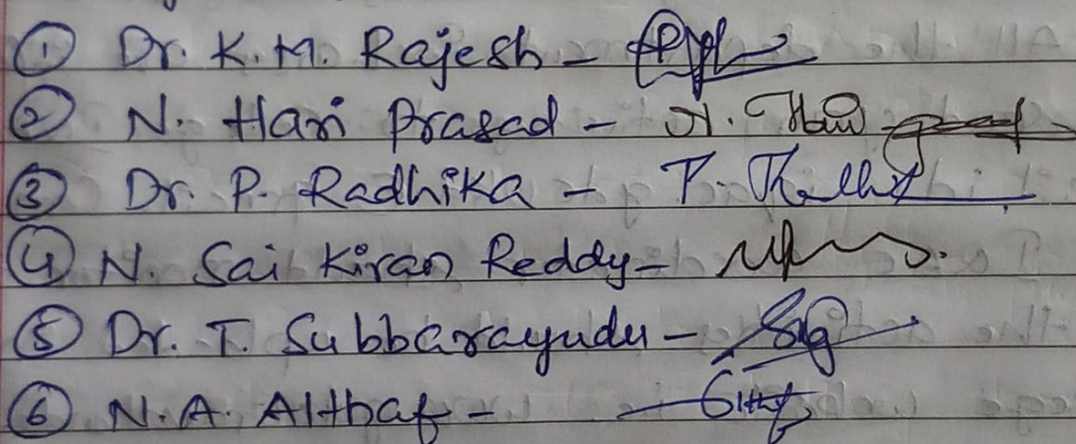 ① Dr. K. M. Rajesh -
② N. Hari Prasad - N. Hari
③ Dr. P. Radhika -
④ N. Sai Kiran Reddy -
⑤ Dr. T. Subbarayudu -
⑥ N. A. Althaf -